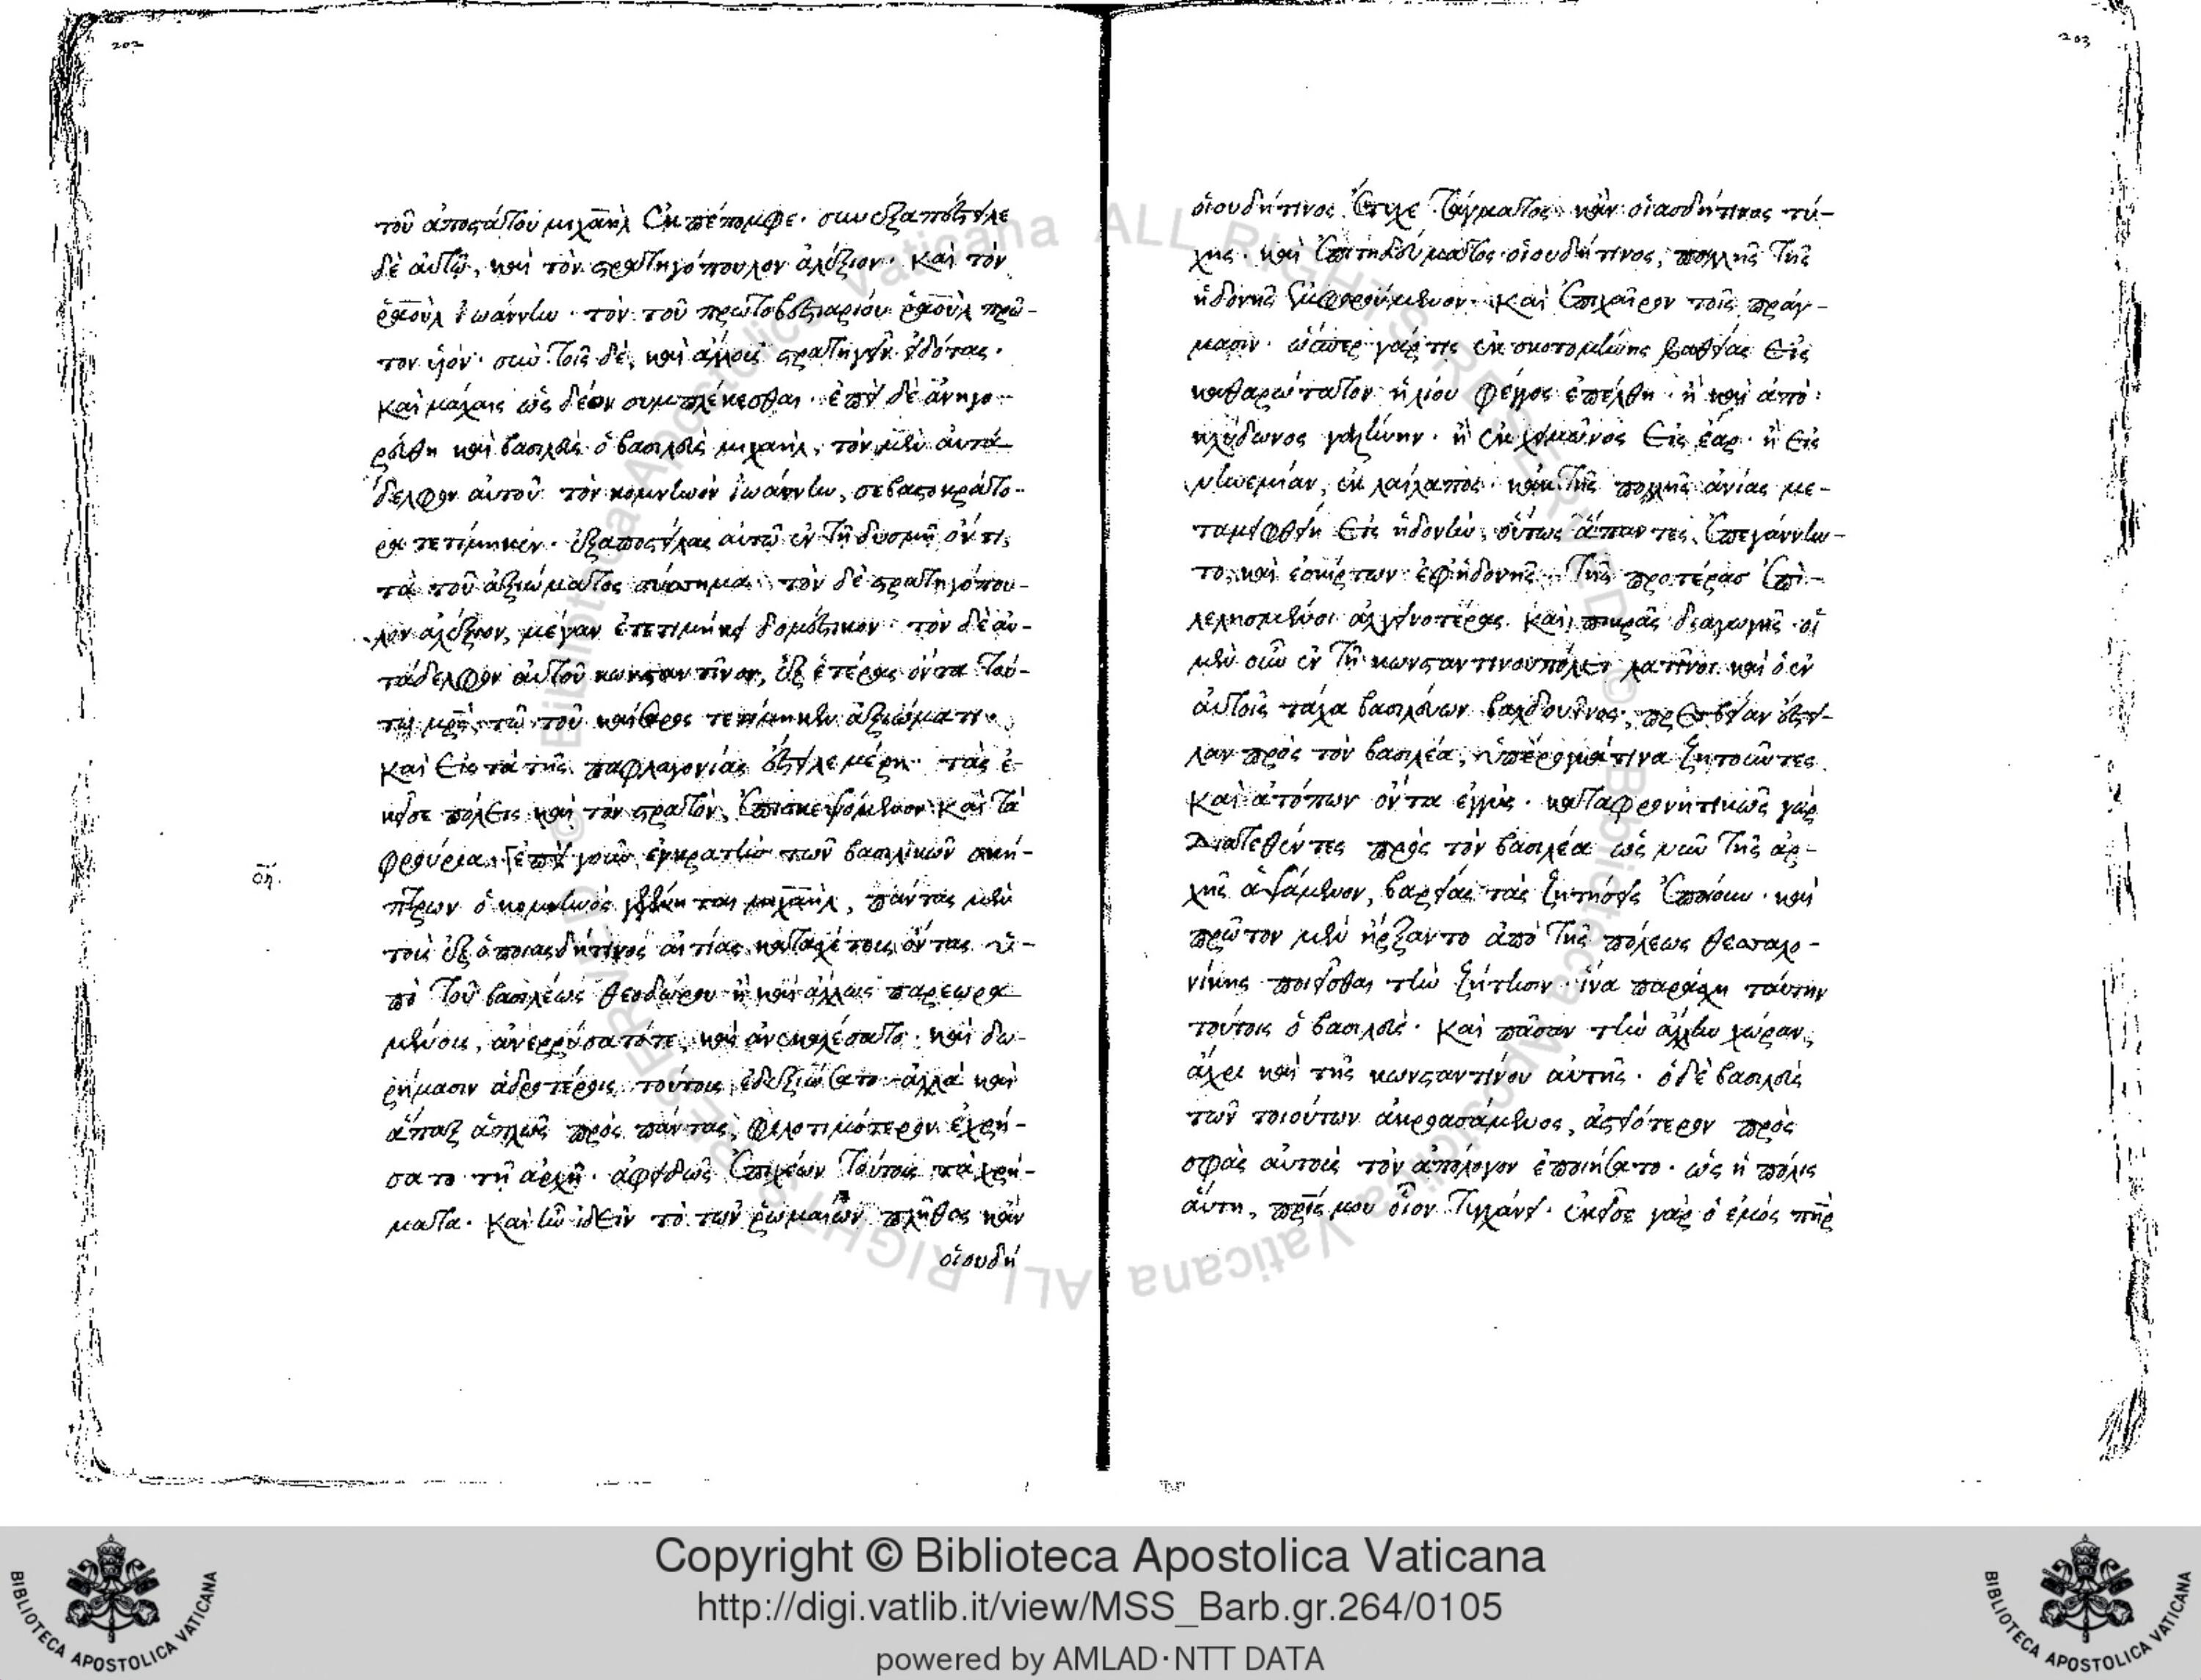 202
τοῦ ἀποστάτου μιχαὴλ ἐκπέπομφε· συνεξαπέστειλε
δὲ αὐτῷ, καὶ τὸν στρατηγόπουλον ἀλέξιον· καὶ τὸν
ῥαοὺλ ἰωάννην· τὸν τοῦ πρωτοβεστιαρίου ῥαοὺλ πρῶ-
τον υἱόν· σὺν τοῖς δὲ, καὶ ἄλλους στρατηγεῖν εἰδότας·
καὶ μάχαις ὡς δέον συμπλέκεσθαι· ἐπεὶ δὲ ἀνηγο-
ρεύθη καὶ βασιλεὺς ὁ βασιλεὺς μιχαὴλ, τὸν μὲν αὐτά-
δελφον αὐτοῦ τὸν κομνηνὸν ἰωάννην, σεβαστοκράτο-
ρα τετίμηκεν· ἐξαποστείλας αὐτῷ ἐν τῇ δυσμῇ ὄντι,
τὰ τοῦ ἀξιώματος σύσσημα· τὸν δὲ στρατηγόπου-
λον ἀλέξιον, μέγαν ἐτετιμήκει δομέστικον· τὸν δὲ αὐ-
τάδελφον αὐτοῦ κωνσταντῖνον, ἐξ ἑτέρας ὄντα τού-
τῳ μρς τῷ τοῦ καίσαρος τετίμηκεν ἀξιώματι·
καὶ εἰς τὰ τῆς παφλαγονίας ἔστειλε μέρη· τὰς ἐ-
κεῖσε πόλεις καὶ τὸν στρατὸν, ἐπισκεψόμενον καὶ τὰ
φρούρια. ἐπεὶ γοῦν ἐγκρατὴς τῶν βασιλικῶν σκή-
ση.
πτρων ὁ κομνηνὸς γεγένηται μιχαὴλ, πάντας μὲν
τοὺς ἐξ ὁποιασδήτινος αἰτίας κατασχέτους ὄντας ὑ-
πὸ τοῦ βασιλέως θεοδώρου ἢ καὶ ἄλλως παρεωρα-
μένους, ἀνερρύσατό τε, καὶ ἀνεκαλέσατο· καὶ δω-
ρήμασιν ἁδροτέροις τούτους ἐδεξιώσατο· ἀλλὰ καὶ
ἅπαξ ἁπλῶς πρὸς πάντας, φιλοτιμότερον ἐχρή-
σατο τῇ ἀρχῇ· ἀφειδῶς ἐπιχέων τούτοις τὰ χρή-
ματα· καὶ ἦν ἰδεῖν τὸ τῶν ῥωμαίων πλῆθος κἂν
οἱουδή
203
οἱουδήτινος ἔτυχε τάγματος· κἂν οἱασδήτινος τύ-
χης· καὶ ἐπιτηδεύματος οἱουδήτινος, πολλῆς τῆς
ἡδονῆς ἐμφορούμενον· καὶ ἐπιχαῖρον τοῖς πράγ-
μασιν· ὥσπερ γάρ τις ἐκ σκοτομήνης βαθείας εἰς
καθαρώτατον ἡλίου φέγγος ἐπέλθῃ· ἢ καὶ ἀπὸ
κλύδωνος γαλήνην· ἢ ἐκ χειμῶνος εἰς ἔαρ· ἢ εἰς
νηνεμίαν, ἐκ λαίλαπος· κἀκ τῆς πολλῆς ἀνίας με-
ταμειφθείη εἰς ἡδονὴν, οὕτως ἅπαντες, ἐπεγάννυν-
το, καὶ ἐσκίρτων ἐφ' ἡδονῆς· τῆς προτέρας ἐπι-
λελησμένοι ἀλγεινοτέρας καὶ πικρᾶς διαγωγῆς· οἱ
μὲν οὖν ἐν τῇ κωνσταντινουπόλει λατῖνοι καὶ ὁ ἐν
αὐτοῖς τάχα βασιλεύων βαλδουῖνος, πρεσβείαν ἔστει-
λαν πρὸς τὸν βασιλέα, ὑπέρογκά τινα ζητοῦντες
καὶ ἀτόπων ὄντα ἐγγὺς· καταφρονητικῶς γὰρ
διατεθέντες πρὸς τὸν βασιλέα ὡς νῦν τῆς ἀρ-
χῆς ἁψάμενον, βαρείας τὰς ζητήσεις ἐποίουν· καὶ
πρῶτον μὲν ἤρξαντο ἀπὸ τῆς πόλεως θεσσαλο-
νίκης ποιεῖσθαι τὴν ζήτησιν· ἵνα παράσχῃ ταύτην
τούτοις ὁ βασιλεὺς· καὶ πᾶσαν τὴν ἄλλην χώραν,
ἄχρι καὶ τῆς κωνσταντίνου αὐτῆς· ὁ δὲ βασιλεὺς
τῶν τοιούτων ἀκροασάμενος, ἀστειότερον πρὸς
σφᾶς αὐτοὺς τὸν ἀπόλογον ἐποιήσατο· ὡς ἡ πόλις
αὕτη, πρίς μου οἷον τυγχάνει· ἐκεῖσε γὰρ ὁ ἐμὸς πηρ
Copyright © Biblioteca Apostolica Vaticana
http://digi.vatlib.it/view/MSS_Barb.gr.264/0105
powered by AMLAD·NTT DATA